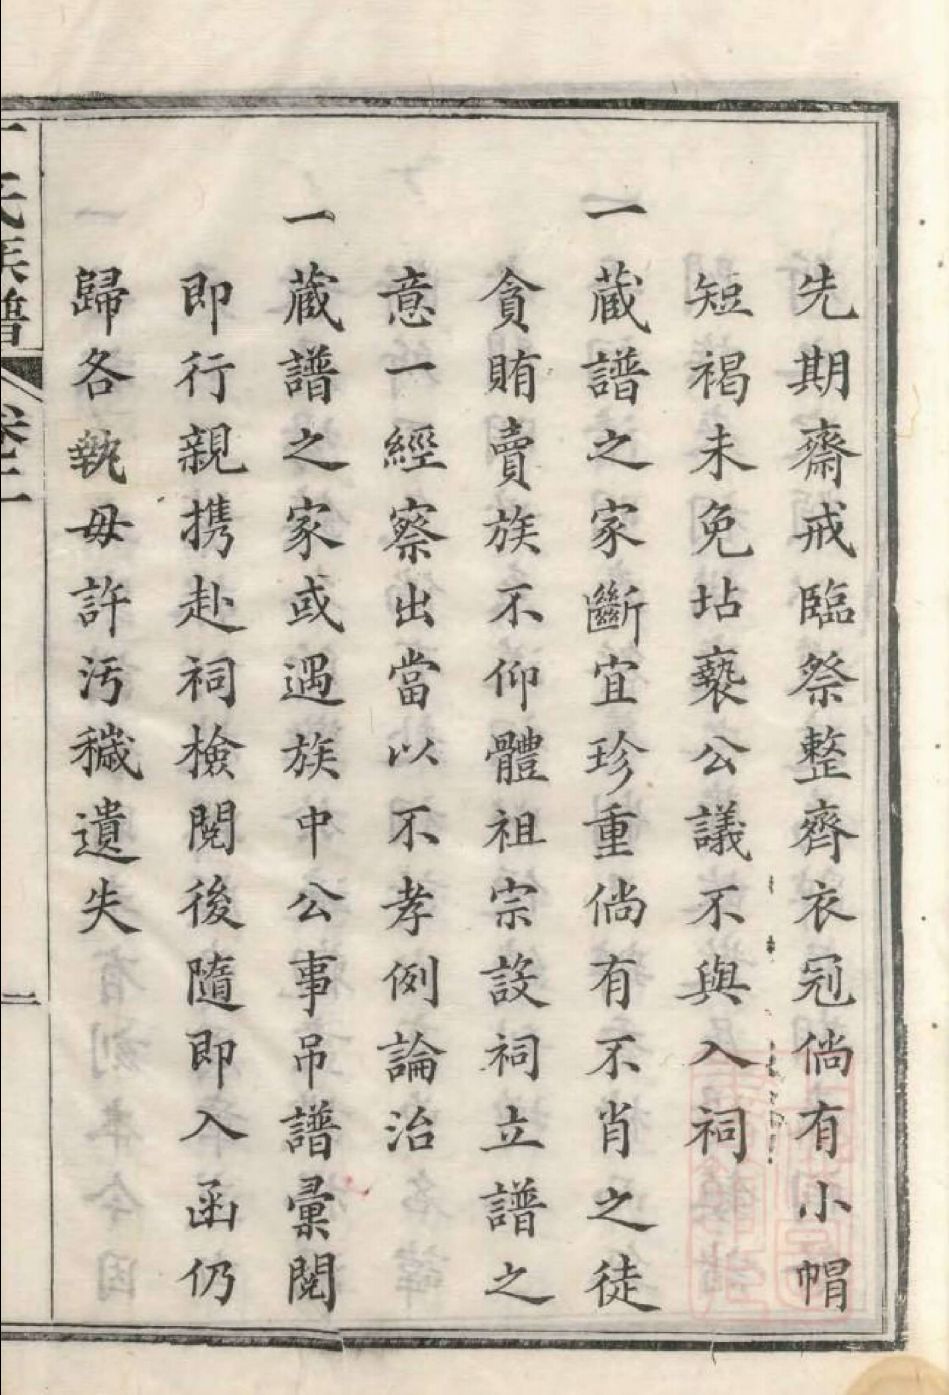 先期齋戒臨祭整齊衣冠倘有小帽
短褐未免坫褻公議不與入祠
一藏譜之家斷宜珍重倘有不肖之徒
貪賄賣族不仰體祖宗設祠立譜之
意一經察出當以不孝例論治
一藏譜之家或遇族中公事吊譜彙閱
即行親携赴祠檢閱後隨即入函仍
歸各執毋許汚穢遺失
氏族譜
卷二